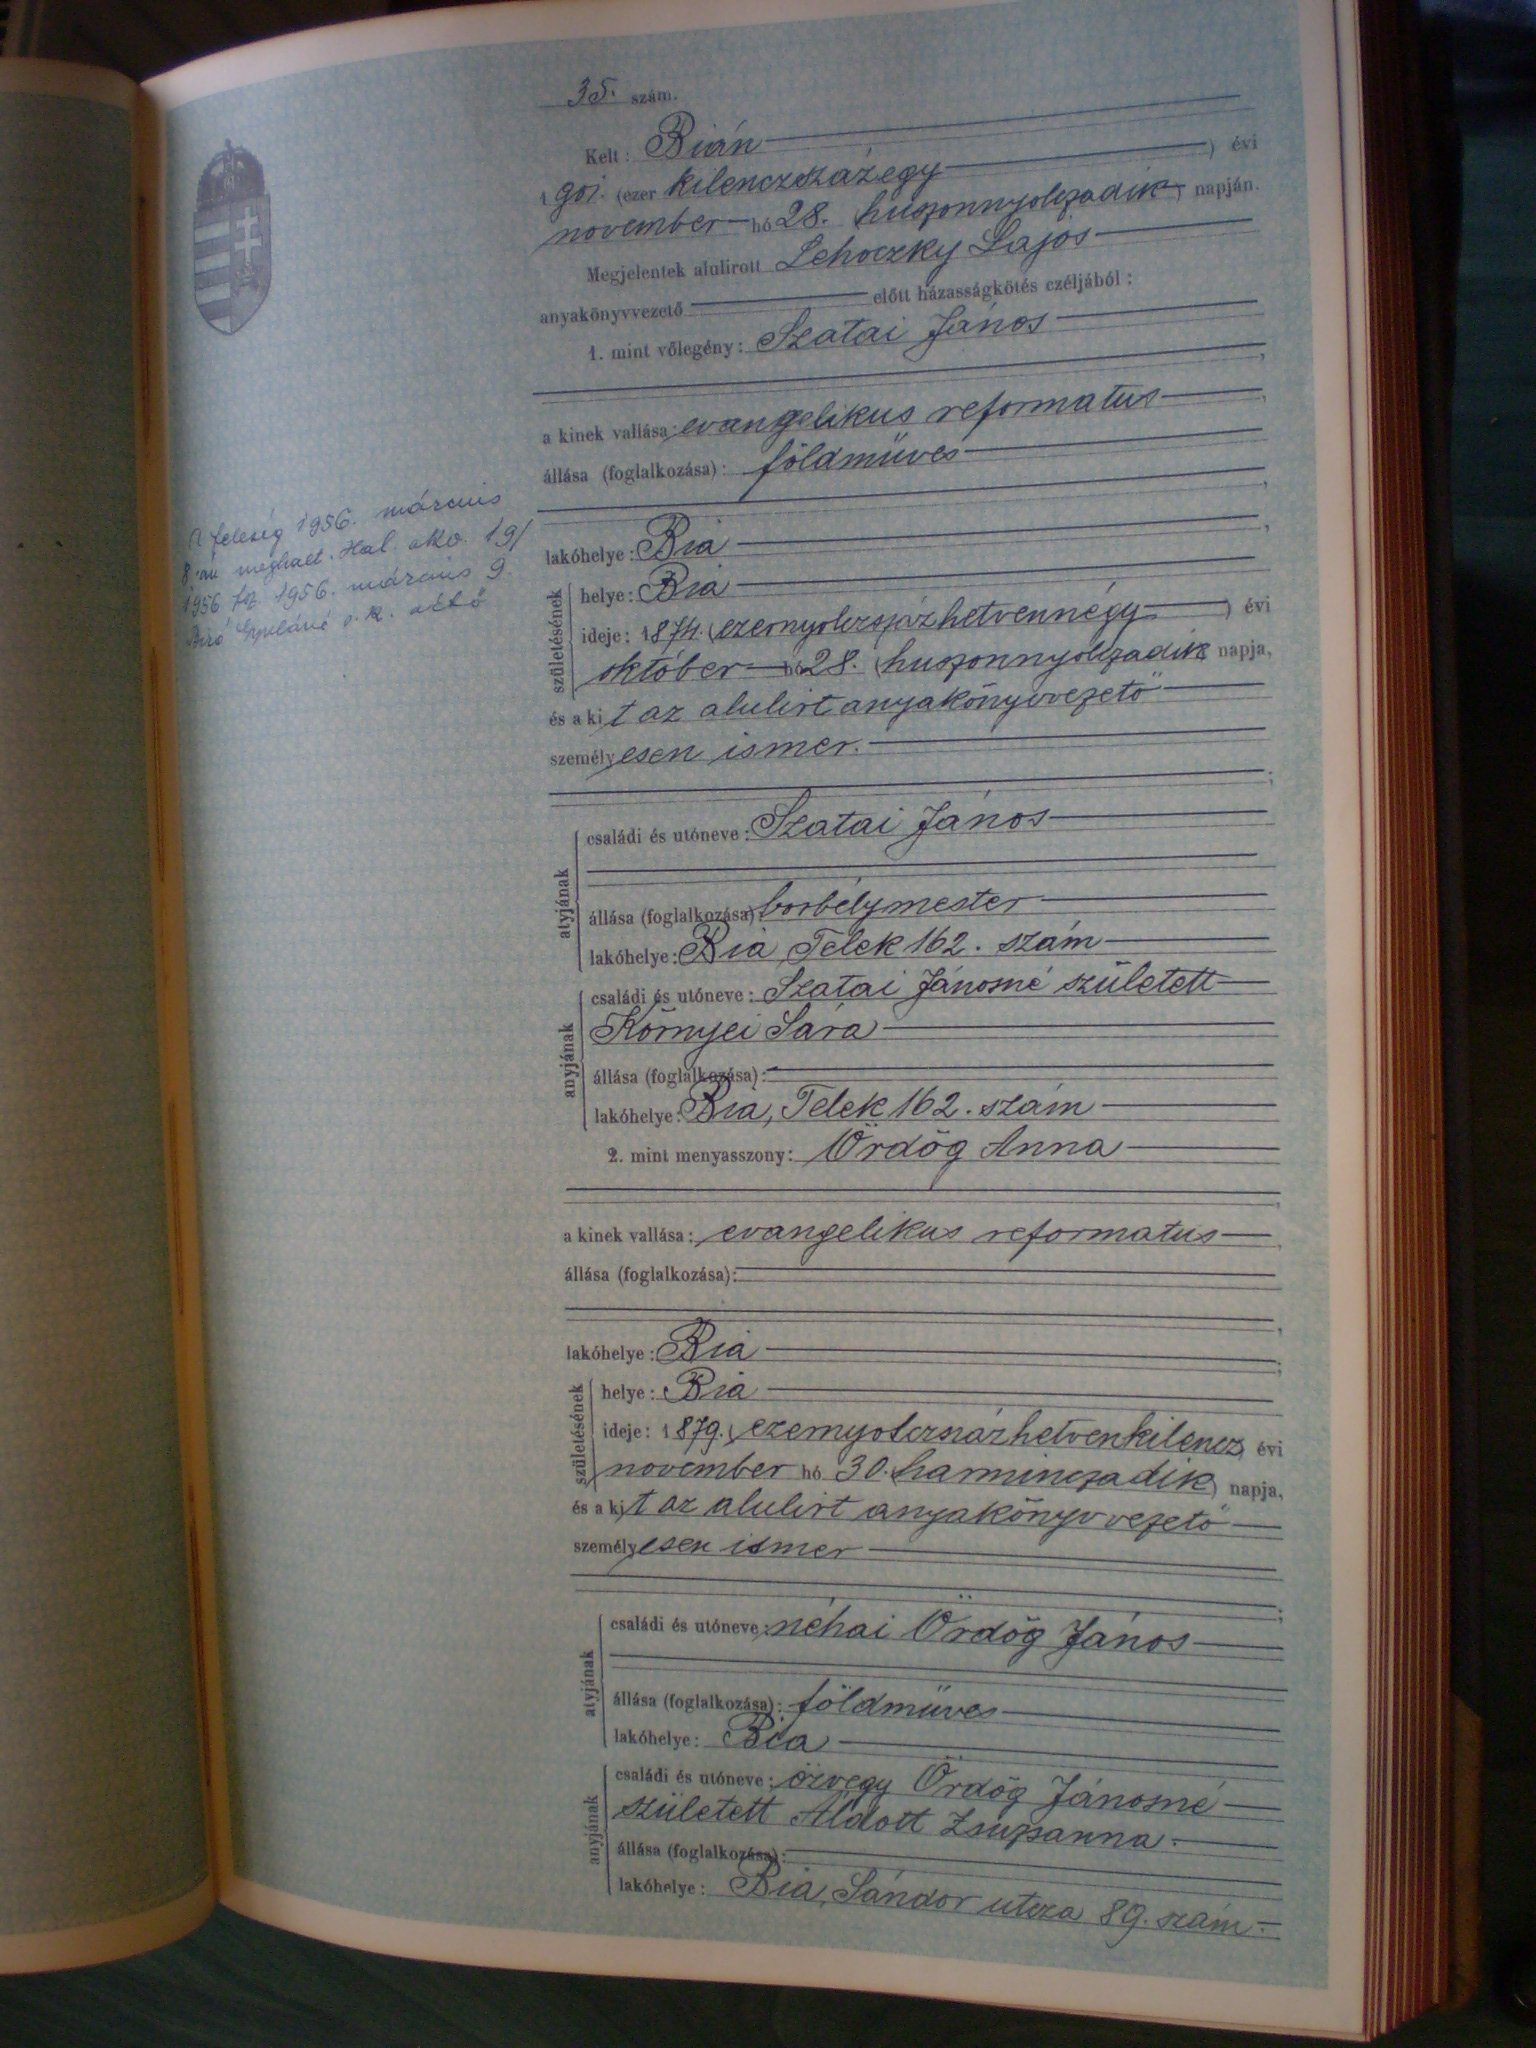 35. szám.
Kelt: Bián
1901. (ezer kilenczszázegy) évi
november hó 28. (huszonnyolczadik) napján.
Megjelentek alulirott Lehoczky Lajos
anyakönyvvezető előtt házasságkötés czéljából:
1. mint vőlegény: Szatai János
a kinek vallása: evangelikus reformatus
állása (foglalkozása): földmüves
lakóhelye: Bia
születésének
helye: Bia
ideje: 1874. (ezernyolczszázhetvennégy) évi
október hó 28. (huszonnyolczadik napja,
és a kit az alulirt anyakönyvvezető
személyesen ismer.
atyjának
családi és utóneve: Szatai János
állása (foglalkozása): borbélymester
lakóhelye: Bia, Telek 162. szám
anyjának
családi és utóneve: Szatai Jánosné született
Környei Sára
állása (foglalkozása):
lakóhelye: Bia, Telek 162. szám
2. mint menyasszony: Ördög Anna
a kinek vallása: evangelikus reformatus
állása (foglalkozása):
lakóhelye: Bia
születésének
helye: Bia
ideje: 1879. (ezernyolczszázhetvenkilencz) évi
november hó 30. (harminczadik) napja,
és a kit az alulirt anyakönyvvezető
személyesen ismer
atyjának
családi és utóneve: néhai Ördög János
állása (foglalkozása): földmüves
lakóhelye: Bia
anyjának
családi és utóneve: özvegy Ördög Jánosné
született Áldott Zsuzsanna.
állása (foglalkozása):
lakóhelye: Bia, Sándor utcza 89. szám.
A feleség 1956. március
8.-án meghalt. Hal. akv. 19/
1956 1956. március 9.
Biró Gyuláné